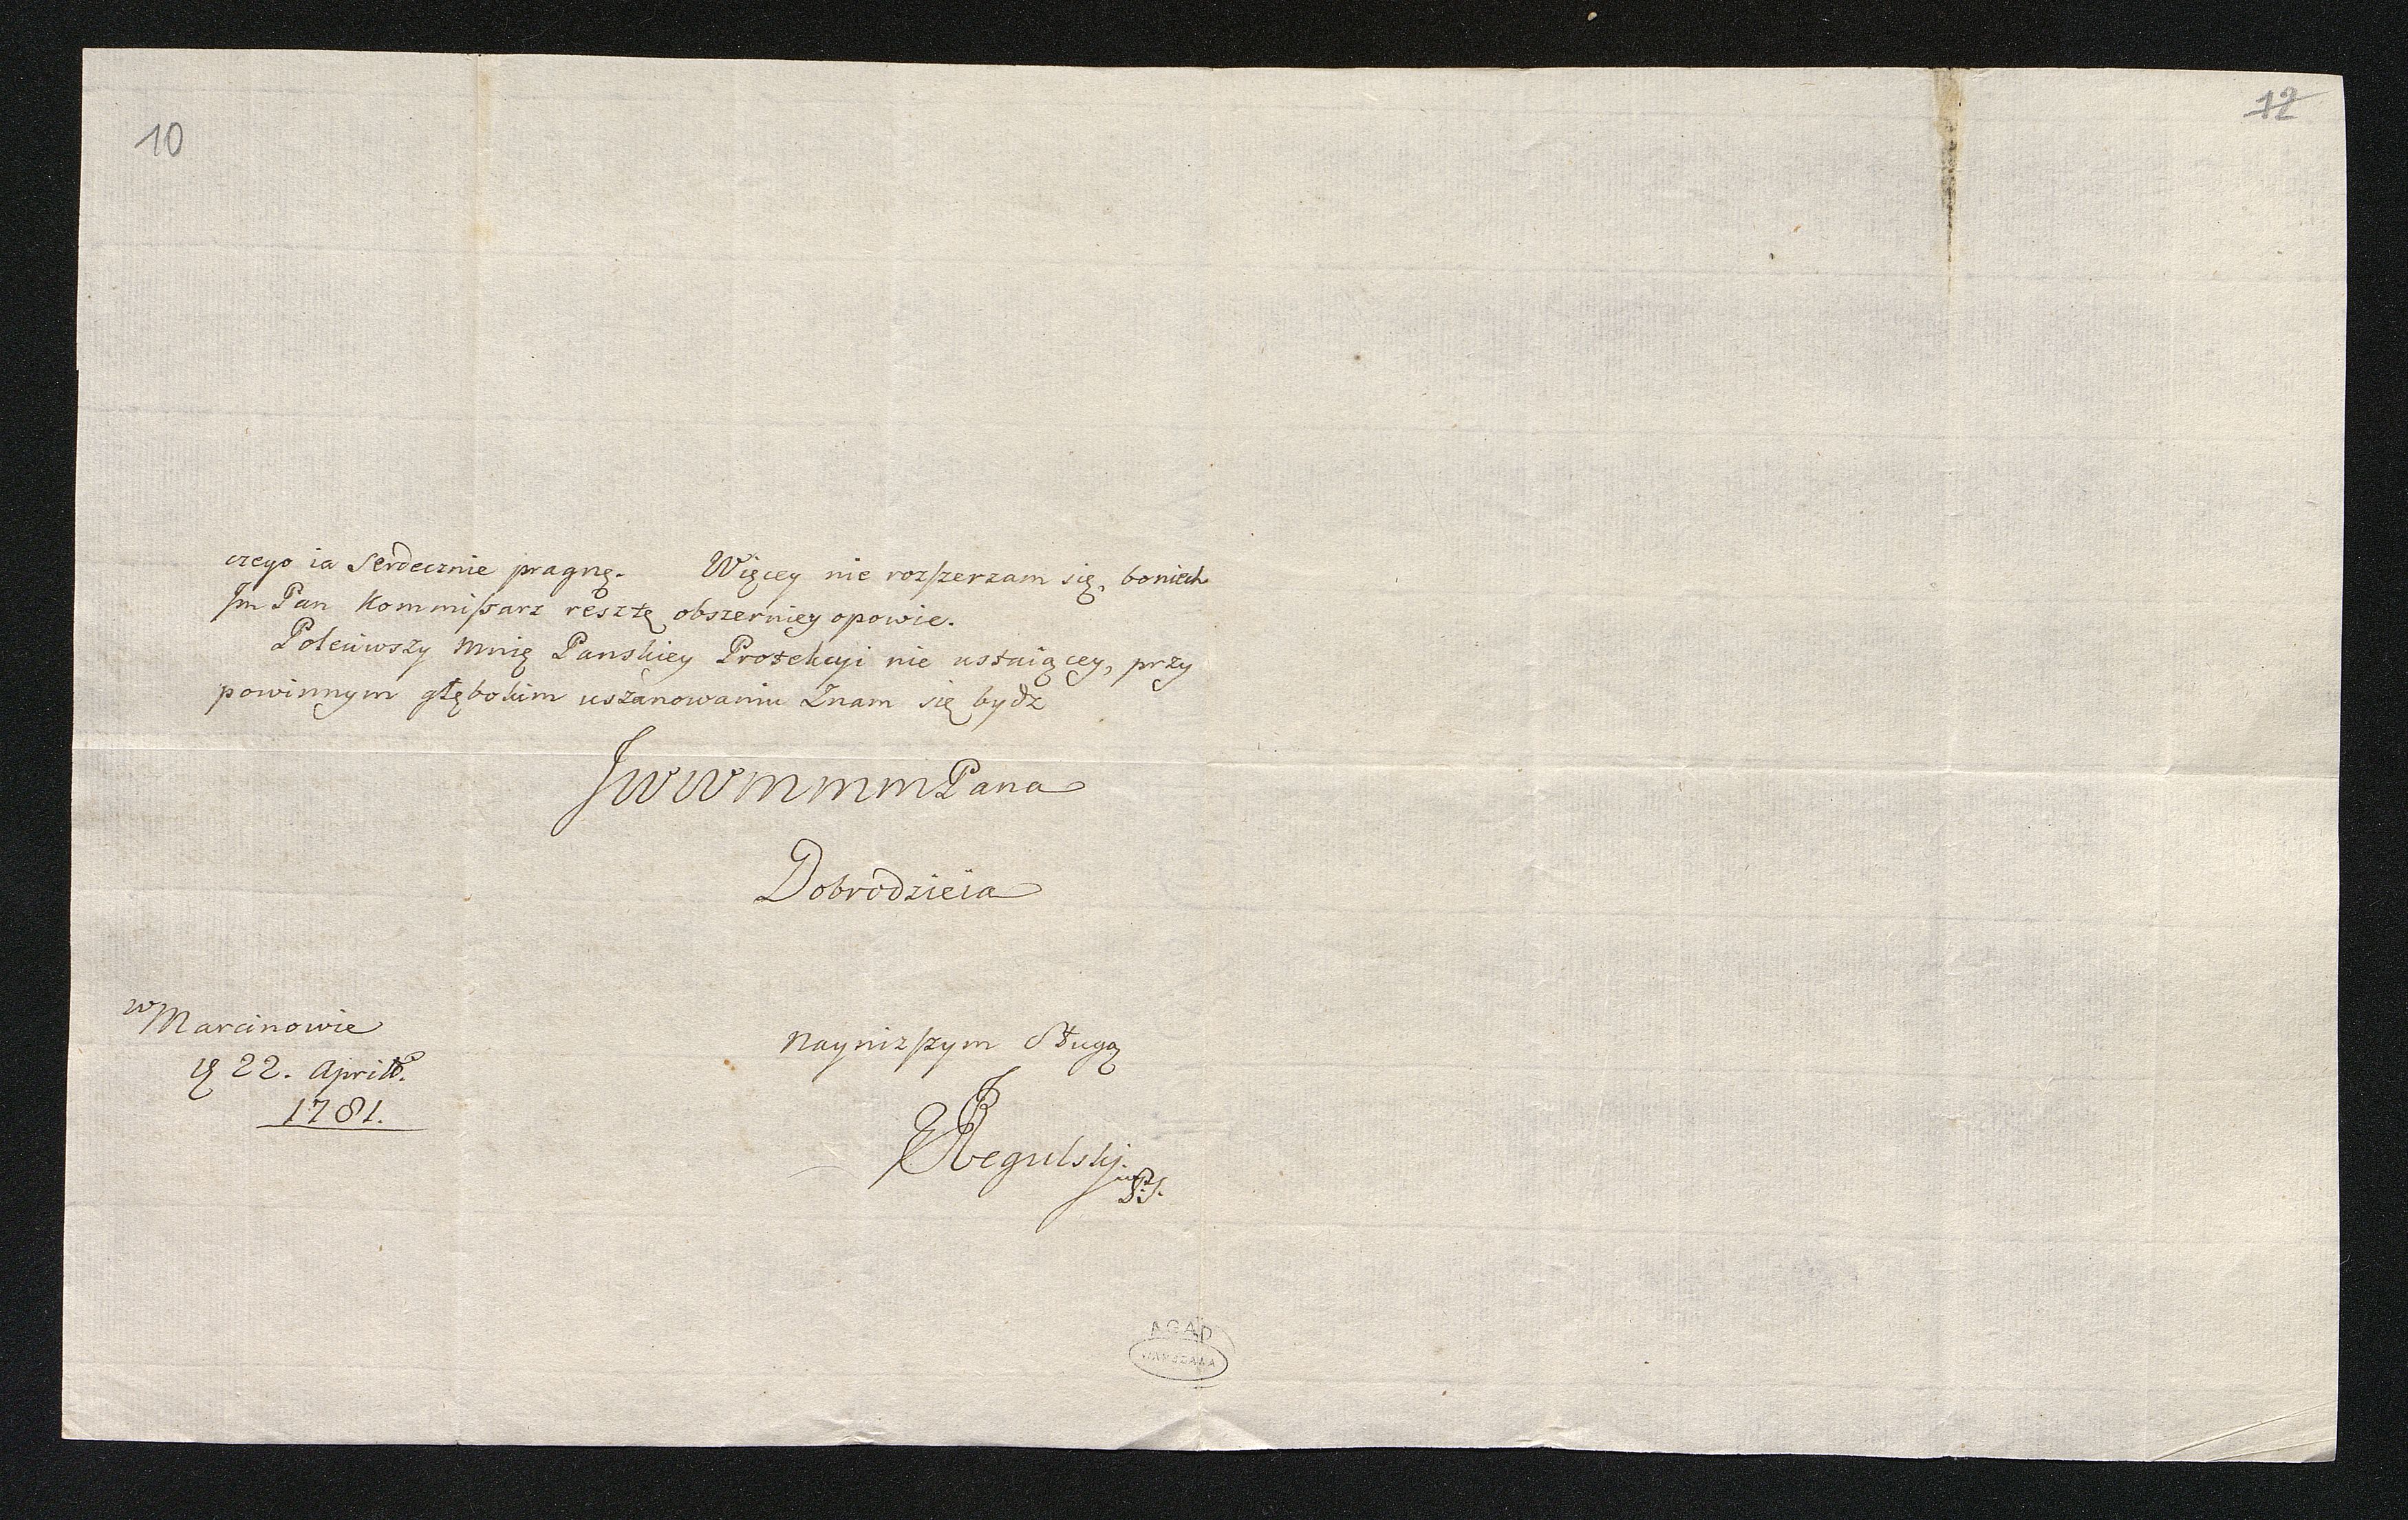 10
12
czego ia serdecznie pragnę. Więcey nie rozszerzam się, boniech
Jm Pan Kommissarz resztę obszerniey opowie.
Poleciwszy mnię Panskiey Protekcyi nie ustaiącey, przy
powinnym głębokim uszanowaniu Znam się bydz
JWWmmmPana
Dobrodzieia
w Marcinowie
22. Aprilis.
1781.
Nayniższym Sługą
Regulskj
AGAD
WARSZAWA